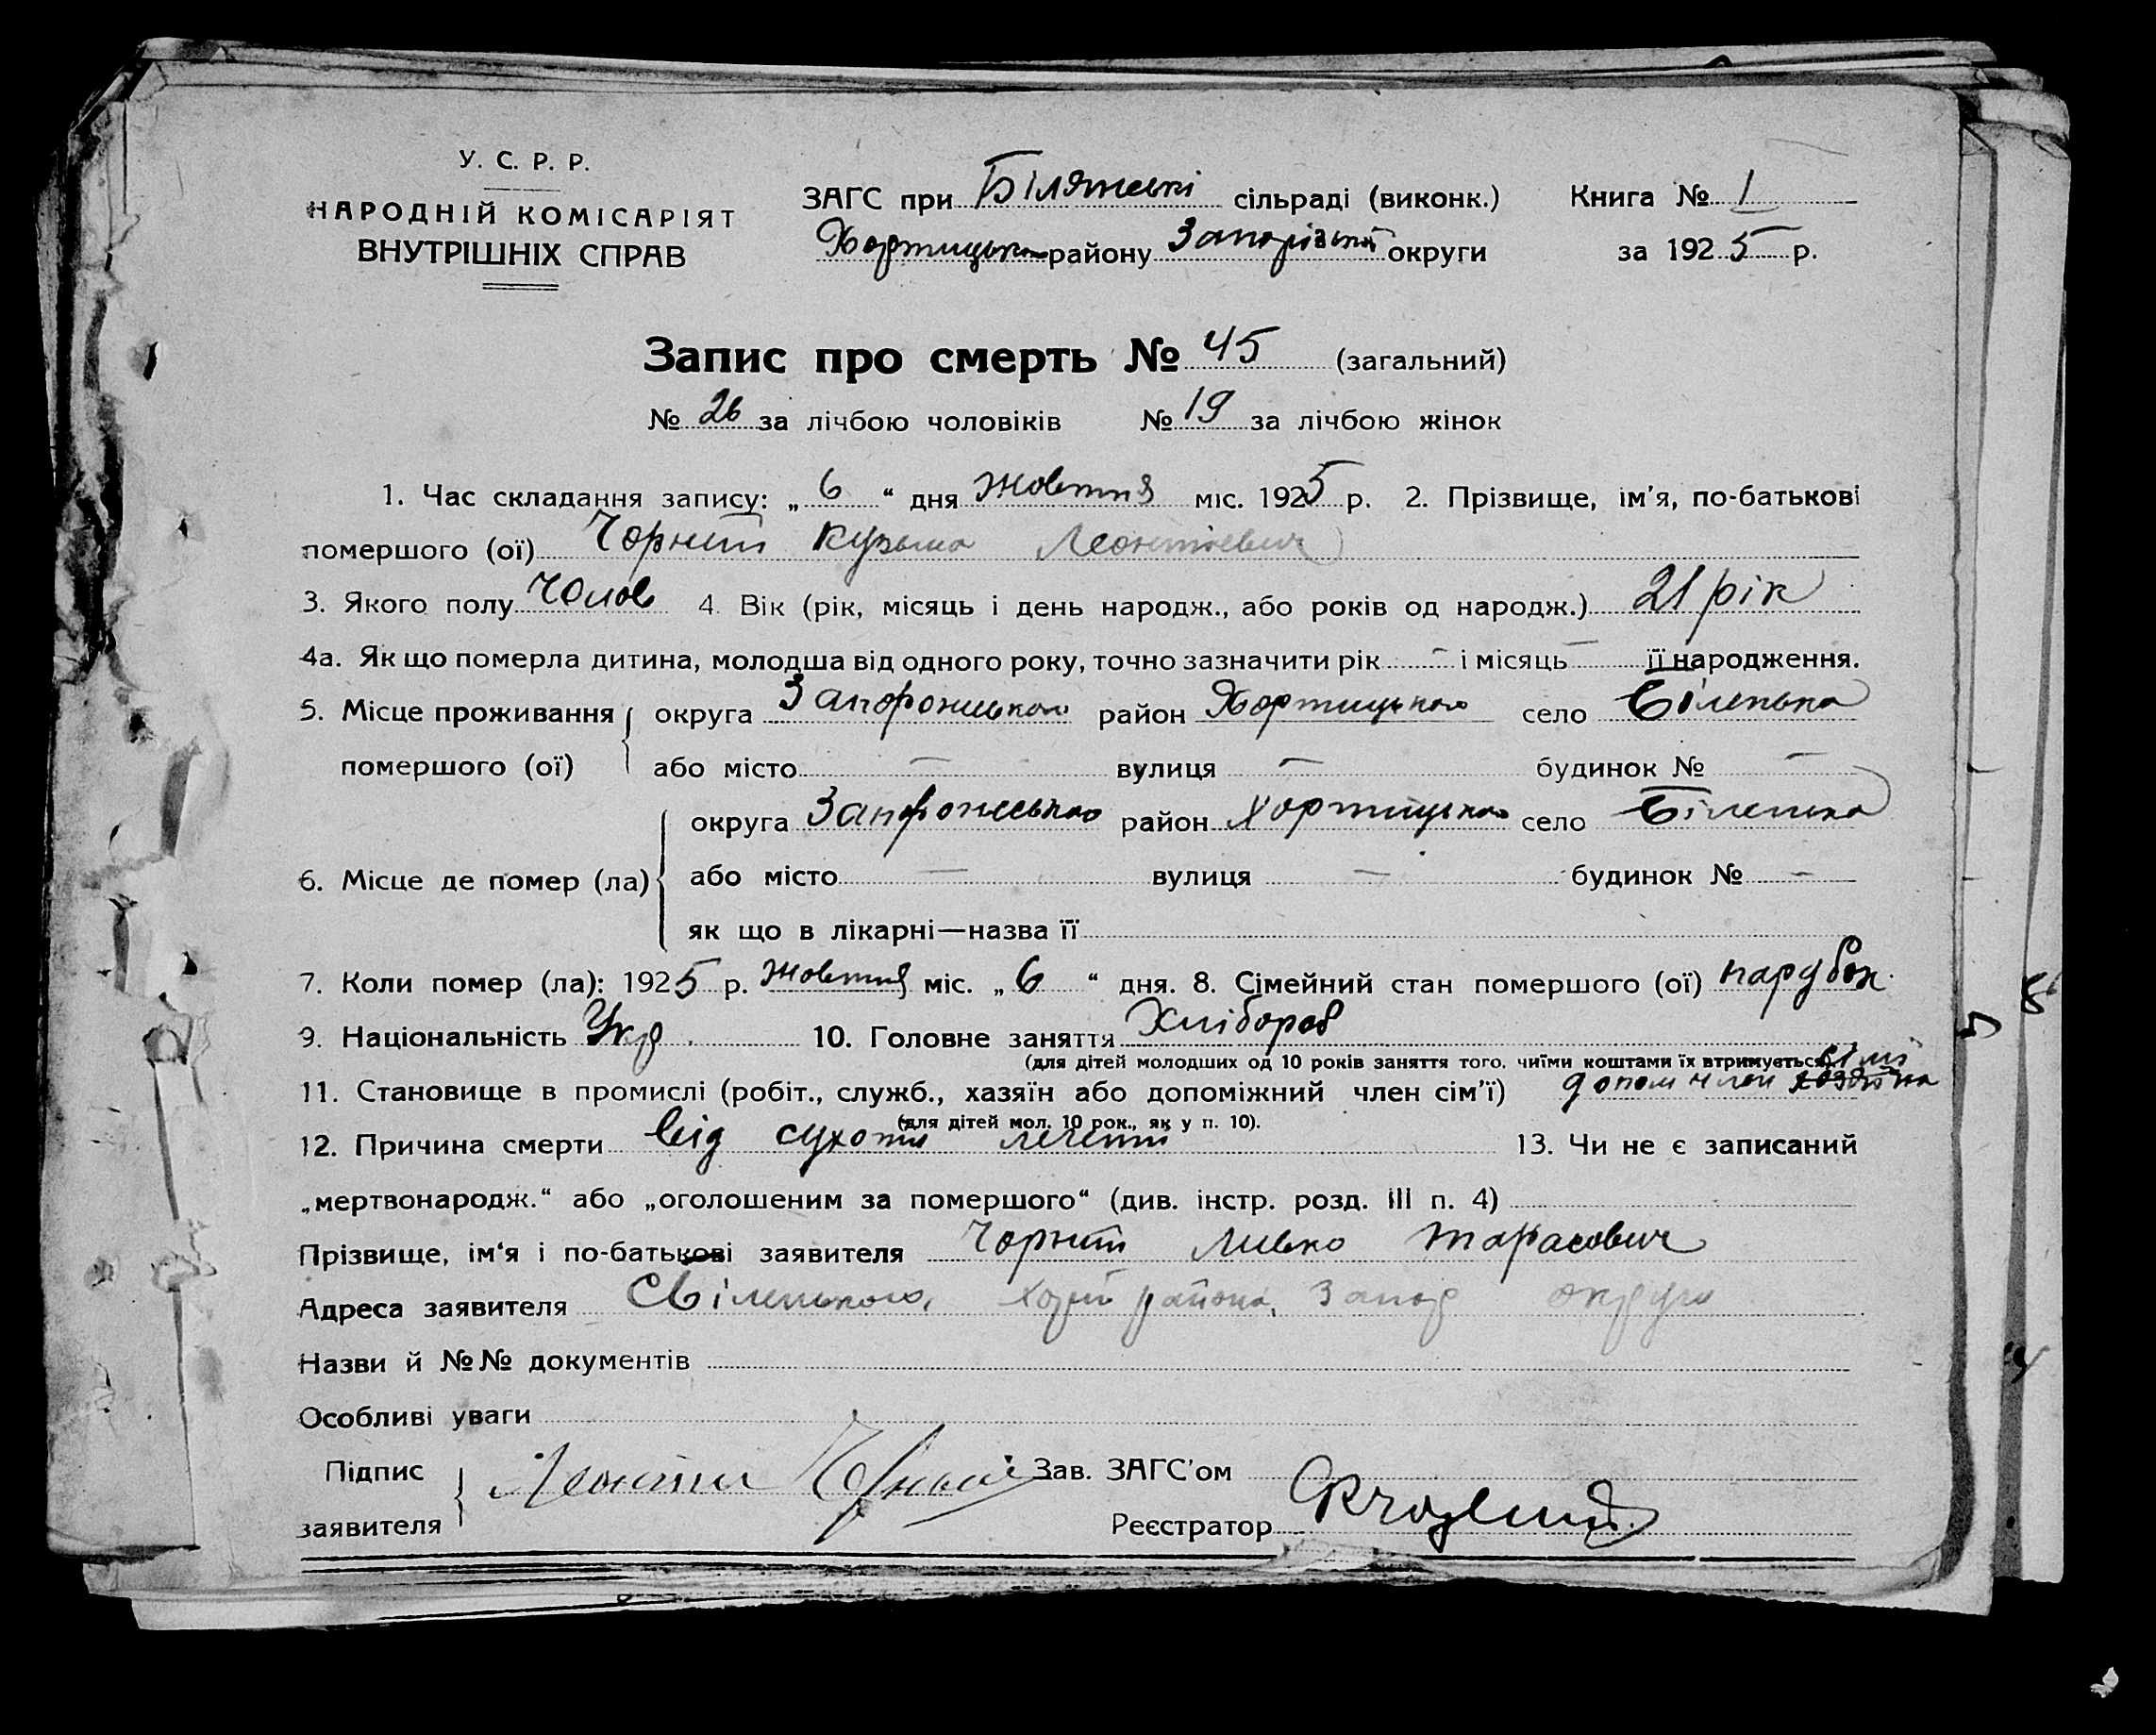 У. С. Р. Р.
НАРОДНІЙ КОМІСАРІЯТ
ВНУТРІШНІХ СПРАВ
ЗАГС при сільраді (виконк.)
Хортицького району Запорізької округи
Книга № 1
за 1925 р.
Запис про смерть № 45 (загальний)
№ 26 за лічбою чоловіків № 19 за лічбою жінок
1. Час складання запису: „ 6 “ дня жовтня міс. 1925 р. 2. Прізвище, ім'я, по-батькові
помершого (ої) Чорний Кузьма Леонтіевич
3. Якого полу Чолов 4. Вік (рік, місяць і день народж., або років од народж.) 21 рік
4а. Як що померла дитина, молодша від одного року, точно зазначити рік - і місяць - її народження.
5. Місце проживання округа район Хортицького село Біленька
помершого (ої) або місто — вулиця — будинок № —
6. Місце де помер (ла) округа район Хортицького село Біленька
або місто — вулиця — будинок № -
як що в лікарні—назва її
7. Коли помер (ла): 1925 р. жовтня міс. „ 6 “ дня. 8. Сімейний стан помершого (ої) парубок
9. Національність Укр. 10. Головне заняття Хлібороб
(для дітей молодших од 10 років заняття того, чиїми коштами їх втримується)
11. Становище в промислі (робіт., служб., хазяїн або допоміжний член сім'ї) допом член сімї
(для дітей мол. 10 рок., як у п. 10).
12. Причина смерти від сухоти легенів 13. Чи не є записаний
„мертвонародж.“ або „оголошеним за помершого“ (див. інстр. розд. III п. 4)
Прізвище, ім'я і по-батькові заявителя Чорний Тарасович
Адреса заявителя района, Запор округи
Назви й №№ документів
Особливі уваги
Підпис
заявителя
Зав. ЗАГС'ом
Реєстратор